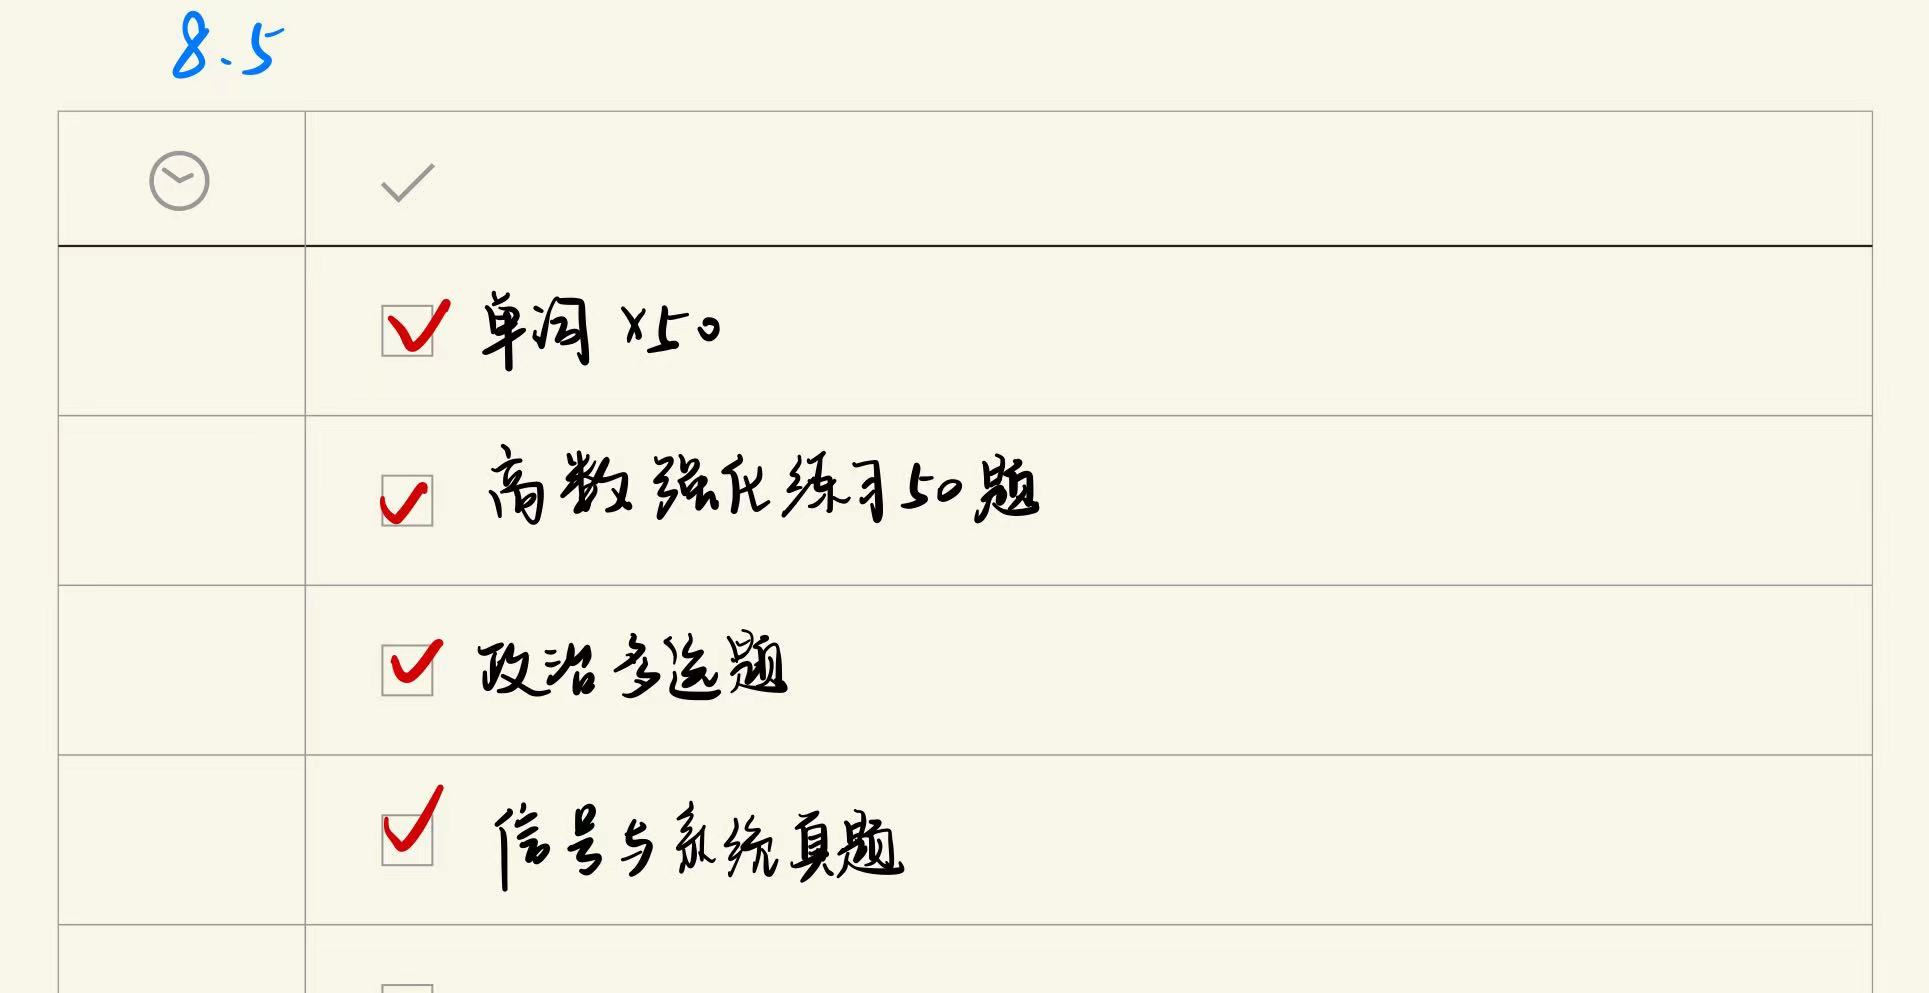 8.5
单词 x50
高数强化练习50题
政治多选题
信号与系统真题